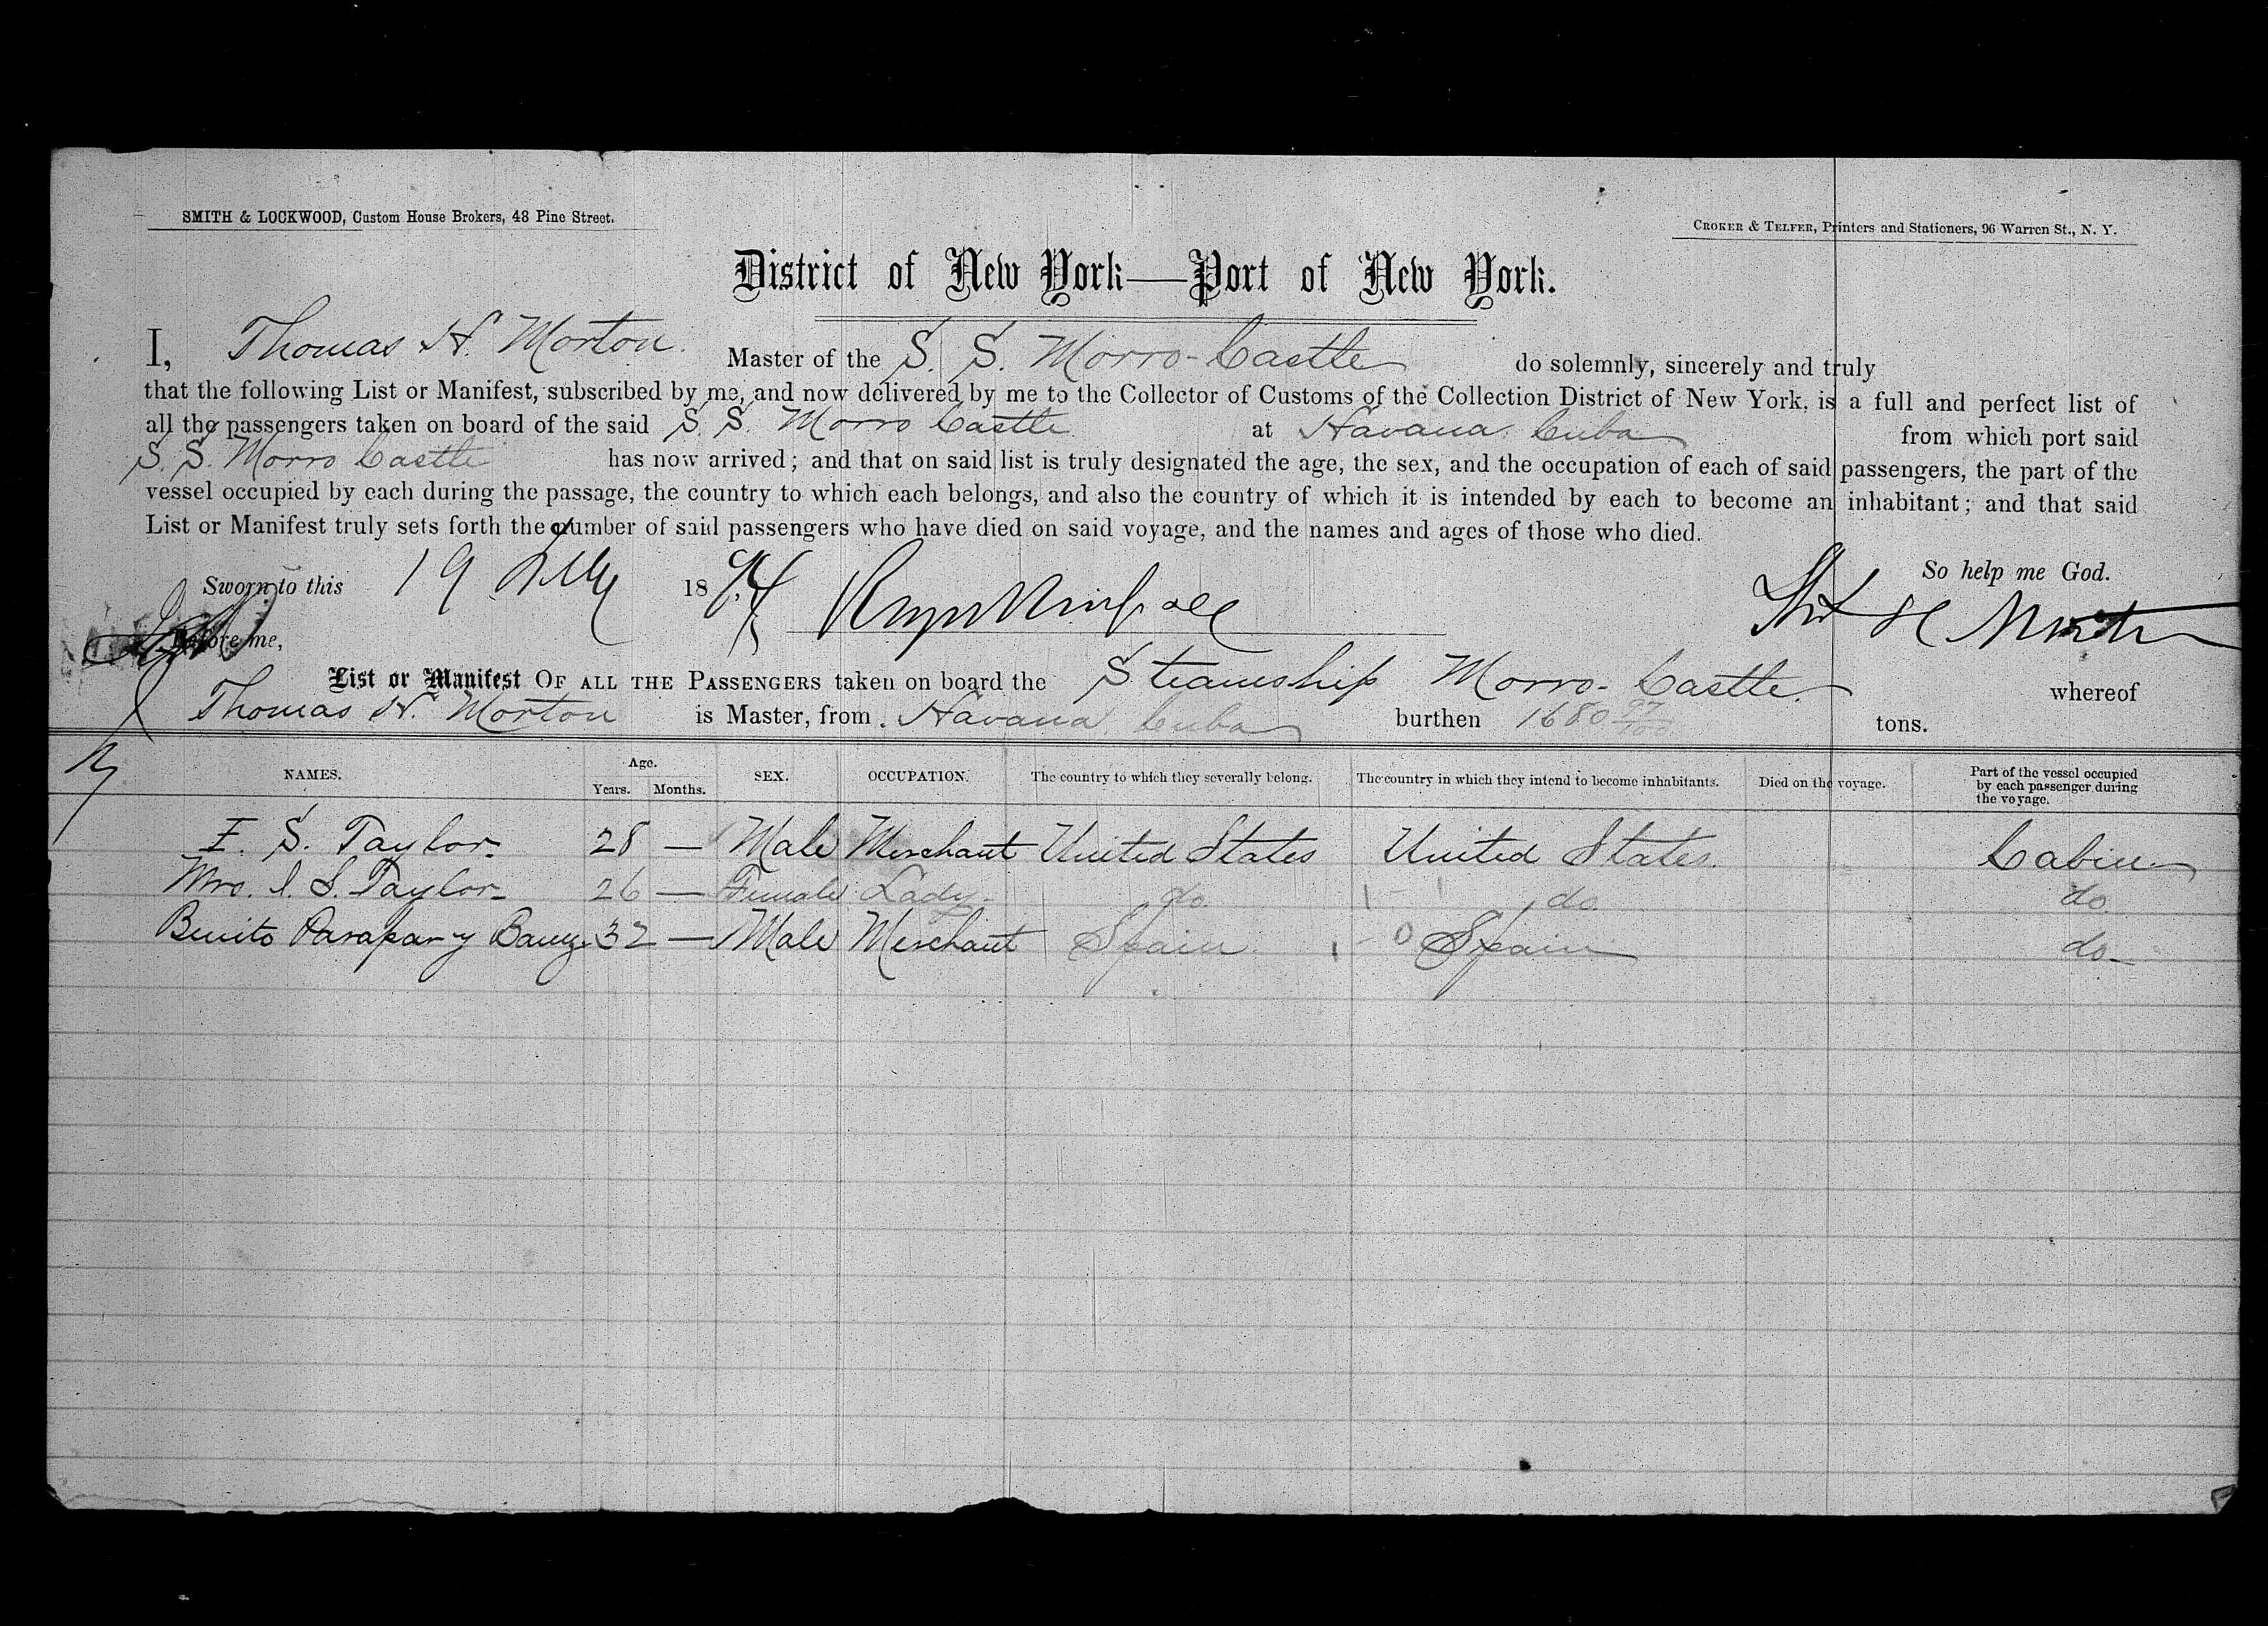 SMITH & LOCKWOOD, Custom House Brokers, 48 Pine Street.
CROKER & TELFER, Printers and Stationers, 96 Warren St., N. Y.
District of New York—Port of New York.
I, Thomas H. Morton. Master of the S. S. Morro-Castle do solemnly, sincerely and truly
that the following List or Manifest, subscribed by me, and now delivered by me to the Collector of Customs of the Collection District of New York, is a full and perfect list of
all the passengers taken on board of the said S. S. Morro Castle at Havana Cuba from which port said
S. S. Morro Castle has now arrived; and that on said list is truly designated the age, the sex, and the occupation of each of said passengers, the part of the
vessel occupied by each during the passage, the country to which each belongs, and also the country of which it is intended by each to become an inhabitant; and that said
List or Manifest truly sets forth the number of said passengers who have died on said voyage, and the names and ages of those who died.
So help me God.
Sworn to this 19 18
Before me,
List or Manifest OF ALL THE PASSENGERS taken on board the Steamship Morro-Castle whereof
Thomas H. Morton is Master, from Havana Cuba burthen 1680 97/100 tons.
NAMES. Age. Years. Months. SEX. OCCUPATION. The country to which they severally belong. The country in which they intend to become inhabitants. Died on the voyage. Part of the vessel occupied by each passenger during the voyage.
S. Taylor 28 — Male Merchant United States United States. Cabin
Mrs. S. Taylor 26 — Female Lady do. do. do.
Benito y 32 — Male Merchant Spain Spain do.